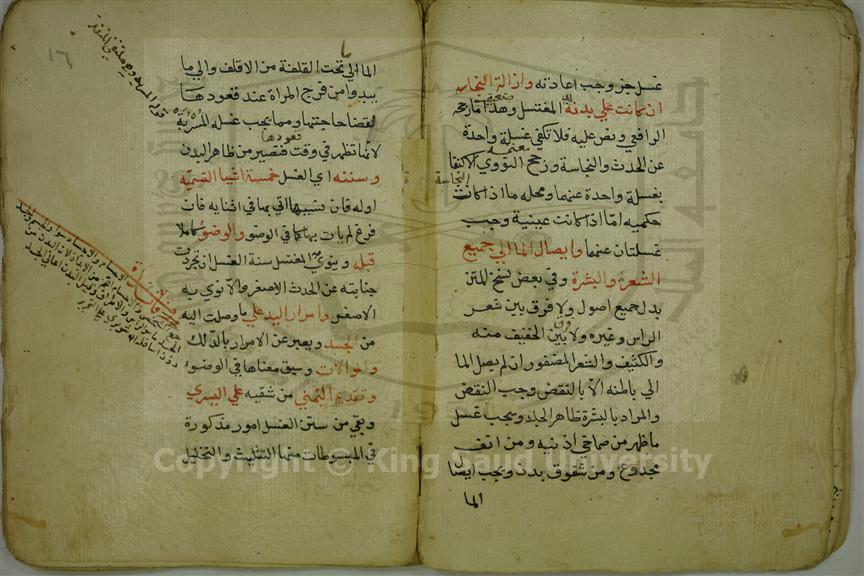 غسل جزء وجب اعادته وازالة النجاسة
ان كانت علي بدنه اي المغتسل وهذا ما رجحه
الرافعي ونص عليه فلا تكفي غسلة واحدة
عن الحدث والنجاسة ورجح النووي الاكتفا
بغسلة واحدة عنهما ومحله ما اذا كانت النجاسة
حكميه امّا اذا كانت عينية وجب
غسلتان عنهما وايصال الما الي جميع
الشعر والبشرة وفي بعض نسخ المتن
بدل جميع اصول ولا فرق بين شعر
الراس وغيره ولا بين الخفيف منه
والكثيف والشعر المضفور ان لم يصل الما
الي باطنه الا بالنقض وجب النقض
والمراد بالبشرة ظاهر الجلد ويجب غسل
ما ظهر من صماخي اذنيه ومن انف
مجدوع ومن شقوق بدن ويجب ايضا
الما
١٣٦
الما الي ما تحت القلفة من الاقلف والي ما
يبدوا من فرج المراة عند قعودها
لقضا حاجتها ومما يجب غسله المسربة
لانها تظهر في وقت قعودها فتصير من ظاهر البدن
وسننه اي الغسل خمسة اشيا التسميه
اوله فان نسيها اتي بها في اثنايه فان
فرغ لم يات بها كما في الوضو والوضوء كاملا
قبله وينوي به المغتسل سنة الغسل ان تجردت
جنابته عن الحدث الاصغر والا نوي به
الاصغر وامرار اليد علي ما وصلت اليه
من الجسد ويعبر عن الامرار بالدّلك
والموالات وسبق معناها في الوضوء
وتقديم اليمني من شقيه علي اليسري
وبقي من سنن الغسل امور مذكورة
في المبسوطات منها التثليث والتخليل
Copyright © King Saud University